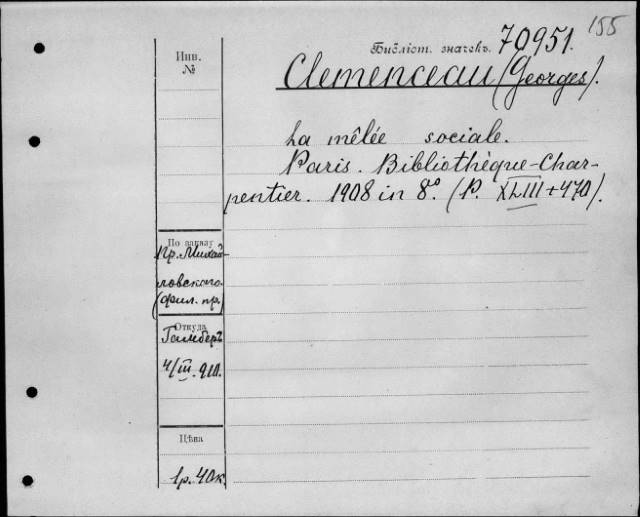 155
Библіот. значекъ. 70951.
Clemenceau (Georges).
La mêlée sociale.
Paris. Bibliothèque-Char-
pentier. 1908 in 8º. (P. XLIII+470).
Инв.
№
По заказу
Пр. Михай-
ловского
(фил. пр.)
Откуда
Гамберъ
4/III. 910.
Цѣна
1р. 40к